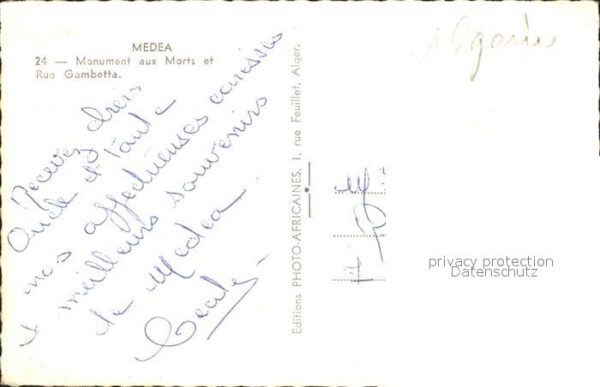 MEDEA
24 — Monument aux Morts et
Rue Gambetta.
Recevez chers
Oncle et Tante
mes affectueuses caresses
et meilleurs souvenirs
de Médéa
Editions PHOTO-AFRICAINES, 1, rue Feuillet, Alger.
Algérie
privacy protection
Datenschutz